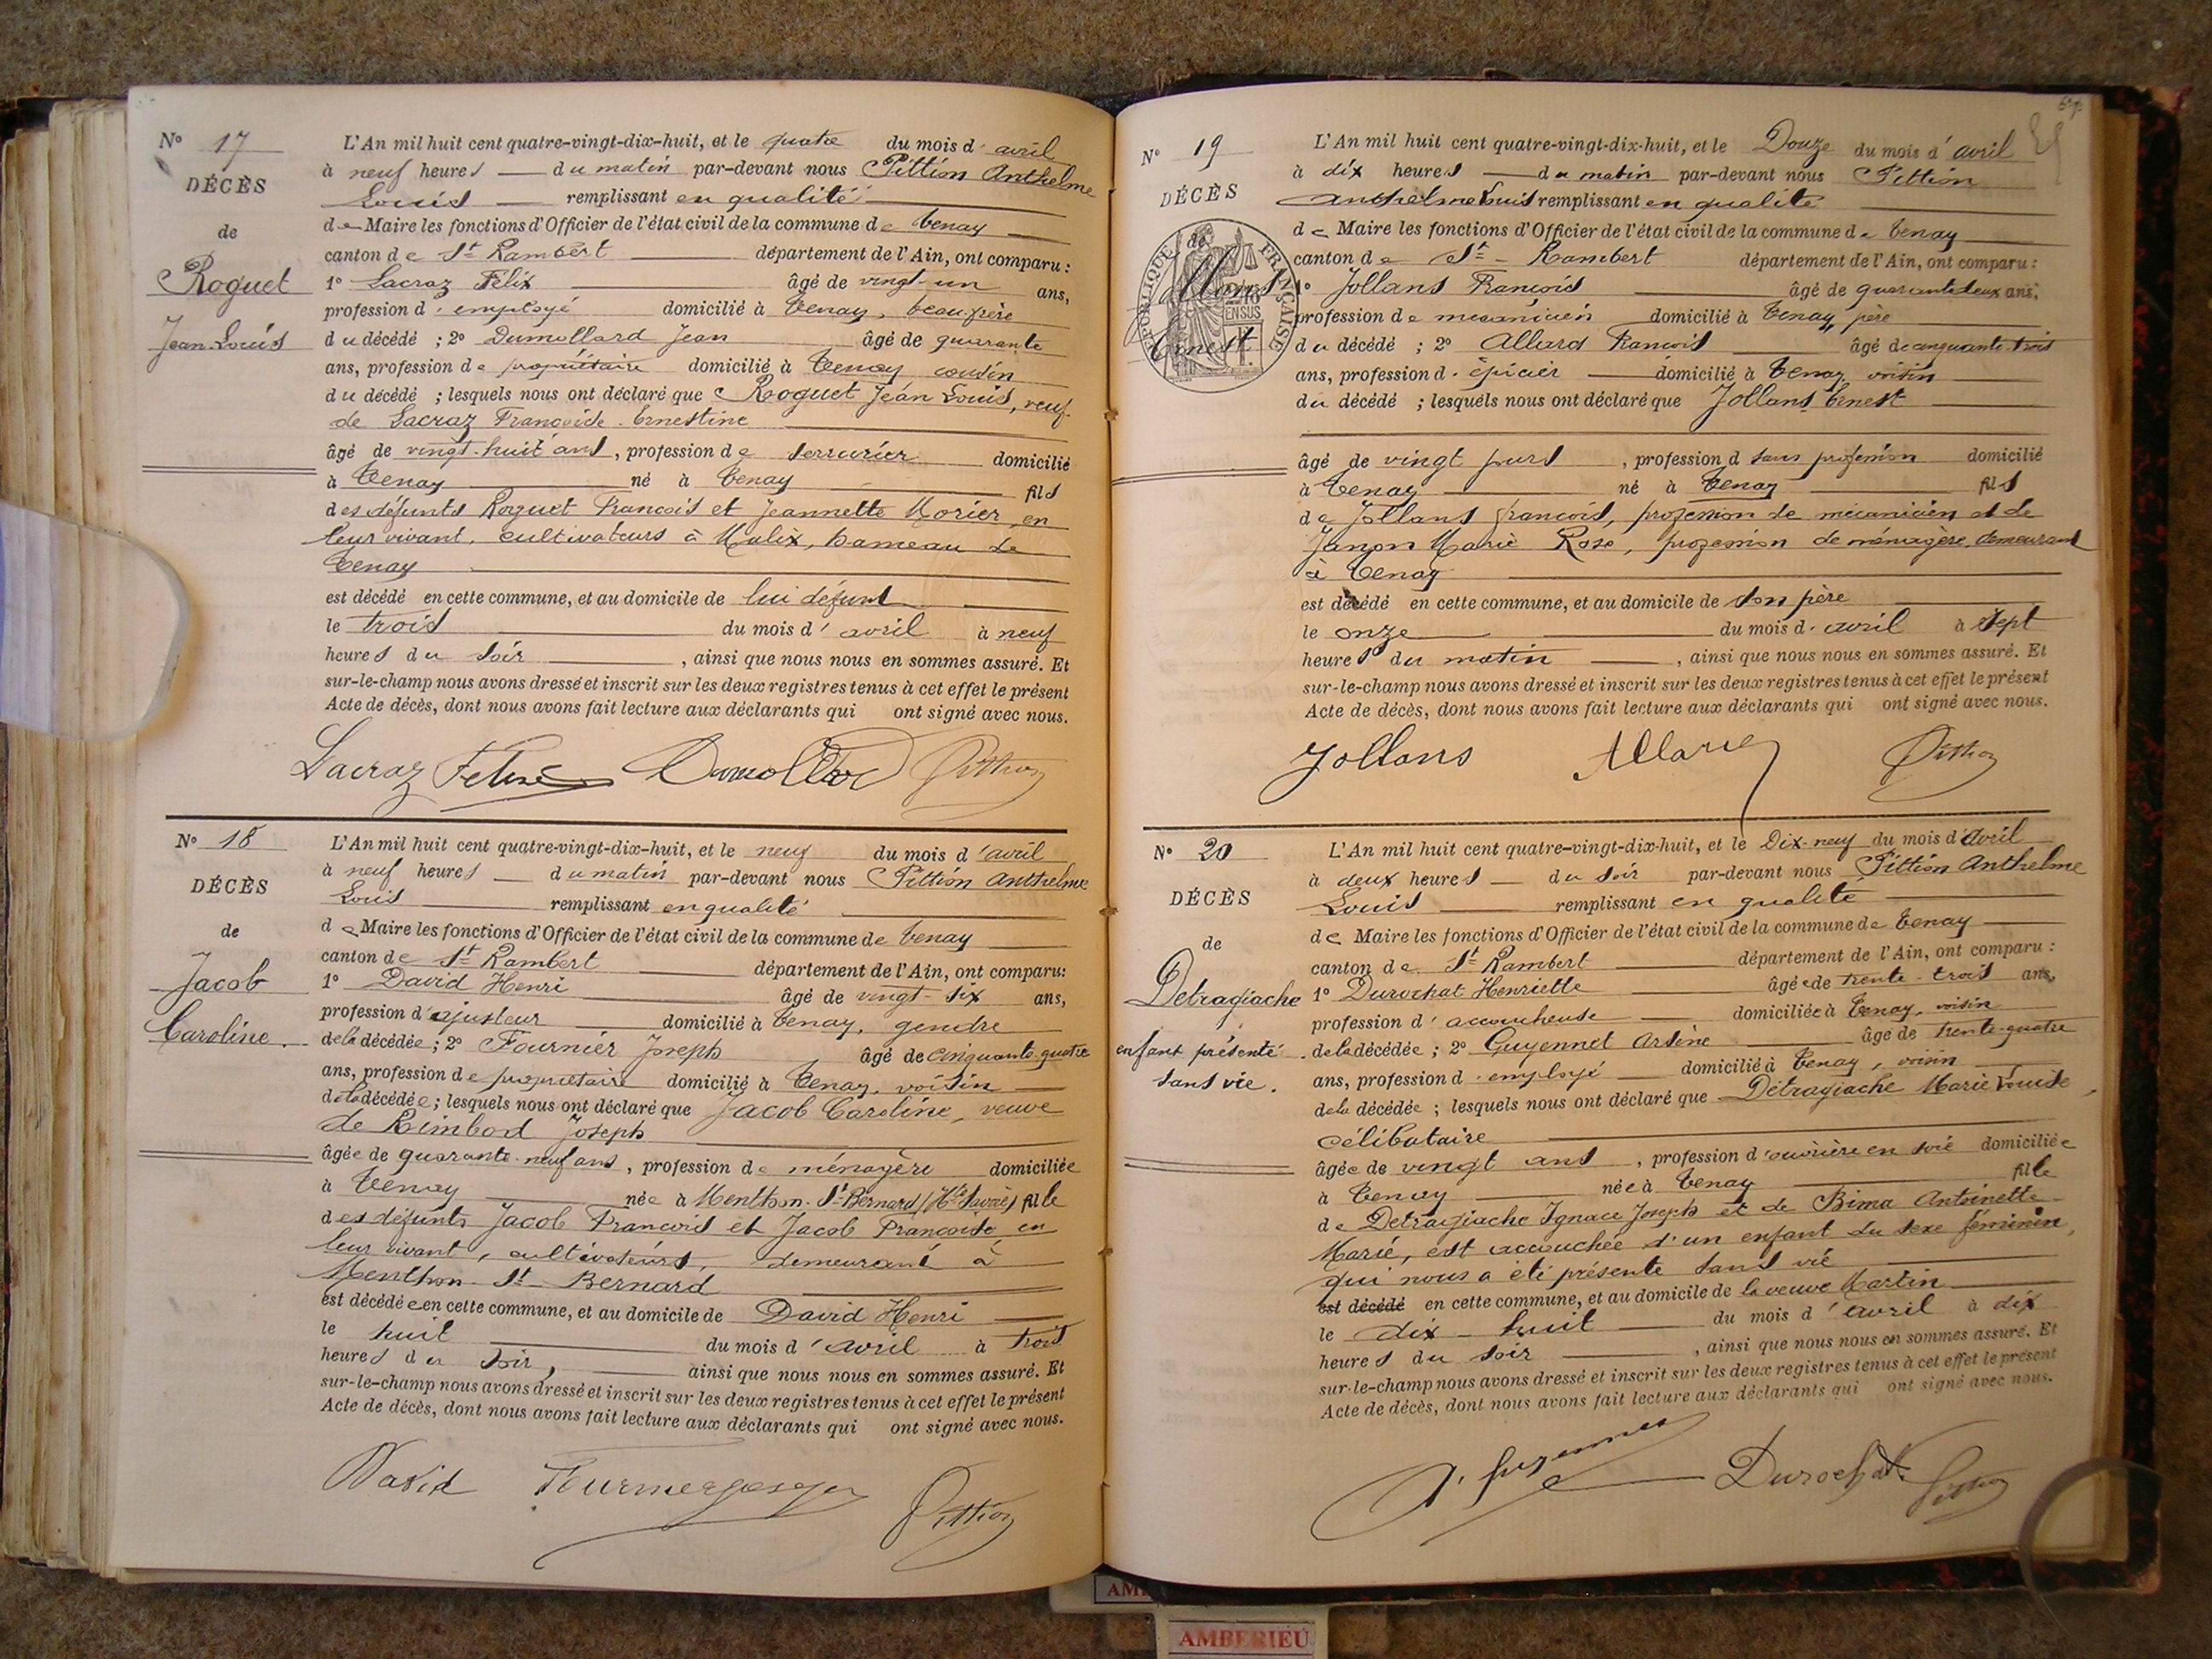 N° 17
DÉCÈS
de
Roguet
Jean Louis
L'An mil huit cent quatre-vingt-dix-huit, et le quatre du mois d'avril
à neuf heures du matin par-devant nous Pittion Anthelme
Louis remplissant en qualité
de Maire les fonctions d'Officier de l'état civil de la commune de Tenay
canton de St Rambert département de l'Ain, ont comparu :
1° Lacraz Félix âgé de vingt-un ans,
profession d'employé domicilié à Tenay, beau père
du décédé ; 2° Dumollard Jean âgé de quarante
ans, profession de propriétaire domicilié à Tenay cousin
du décédé ; lesquels nous ont déclaré que Roguet Jean Louis, veuf
de Lacraz Françoise Ernestine
âgé de vingt-huit ans, profession de serrurier domicilié
à Tenay né à Tenay fils
des défunts Roguet François et Jeannette Morier, en
leur vivant, cultivateurs à Malix, hameau de
Tenay
est décédé en cette commune, et au domicile de lui défunt
le trois du mois d'avril à neuf
heures du soir, ainsi que nous nous en sommes assuré. Et
sur-le-champ nous avons dressé et inscrit sur les deux registres tenus à cet effet le présent
Acte de décès, dont nous avons fait lecture aux déclarants qui ont signé avec nous.
Lacraz Felix Dumollard Pittion
N° 18
DÉCÈS
de
Jacob
Caroline.
L'An mil huit cent quatre-vingt-dix-huit, et le neuf du mois d'avril
à neuf heures du matin par-devant nous Pittion Anthelme
Louis remplissant en qualité
de Maire les fonctions d'Officier de l'état civil de la commune de Tenay
canton de St Rambert département de l'Ain, ont comparu :
1° David Henri âgé de vingt-six ans,
profession d'ajusteur domicilié à Tenay, gendre
de la décédée ; 2° Fournier Joseph âgé de cinquante quatre
ans, profession de propriétaire domicilié à Tenay, voisin
de la décédée ; lesquels nous ont déclaré que Jacob Caroline, veuve
de Rimbod Joseph
âgée de quarante-neuf ans, profession de ménagère domiciliée
à Tenay née à Menthon-St-Bernard (Hte Savoie) fille
des défunts Jacob François et Jacob Françoise, en
leur vivant, cultivateurs, demeurant à
Menthon-St-Bernard
est décédée en cette commune, et au domicile de David Henri
le huit du mois d'avril à trois
heures du soir, ainsi que nous nous en sommes assuré. Et
sur-le-champ nous avons dressé et inscrit sur les deux registres tenus à cet effet le présent
Acte de décès, dont nous avons fait lecture aux déclarants qui ont signé avec nous.
David Pittion
N° 19
DÉCÈS
de
Jollans
Ernest
L'An mil huit cent quatre-vingt-dix-huit, et le Douze du mois d'avril
à dix heures du matin par-devant nous Pittion
Anthelme Louis remplissant en qualité
de Maire les fonctions d'Officier de l'état civil de la commune de Tenay
canton de St-Rambert département de l'Ain, ont comparu :
1° Jollans François âgé de quarante deux ans,
profession de mécanicien domicilié à Tenay, père
du décédé ; 2° Allard François âgé de cinquante-trois
ans, profession d'épicier domicilié à Tenay voisin
du décédé ; lesquels nous ont déclaré que Jollans Ernest
âgé de vingt jours, profession d sans profession domicilié
à Tenay né à Tenay fils
de Jollans François, profession de mécanicien et de
Janon Marie Rose, profession de ménagère, demeurant
à Tenay
est décédé en cette commune, et au domicile de son père
le onze du mois d'avril à sept
heures du matin, ainsi que nous nous en sommes assuré. Et
sur-le-champ nous avons dressé et inscrit sur les deux registres tenus à cet effet le présent
Acte de décès, dont nous avons fait lecture aux déclarants qui ont signé avec nous.
Jollans Allard Pittion
N° 20
DÉCÈS
de
Detragiache
enfant présenté
sans vie.
L'An mil huit cent quatre-vingt-dix-huit, et le Dix-neuf du mois d'avril
à deux heures du soir par-devant nous Pittion Anthelme
Louis remplissant en qualité
de Maire les fonctions d'Officier de l'état civil de la commune de Tenay
canton de St Rambert département de l'Ain, ont comparu :
1° Durochat Henriette âgée de trente-trois ans,
profession d'accoucheuse domiciliée à Tenay, voisin
de la décédée ; 2° Guyennet Arsène âgé de trente-quatre
ans, profession d'employé domicilié à Tenay, voisin
de la décédée ; lesquels nous ont déclaré que Detragiache Marie Louise,
célibataire
âgée de vingt ans, profession d'ouvrière en soie domiciliée
à Tenay née à Tenay fille
de Detragiache Ignace Joseph et de Bima Antoinette
Marie, est accouchée d'un enfant du sexe féminin,
qui nous a été présenté sans vie
est décédé en cette commune, et au domicile de la veuve Martin
le dix-huit du mois d'avril à dix
heures du soir, ainsi que nous nous en sommes assuré. Et
sur-le-champ nous avons dressé et inscrit sur les deux registres tenus à cet effet le présent
Acte de décès, dont nous avons fait lecture aux déclarants qui ont signé avec nous.
A. Guyennet Durochat Pittion
AMBERIEU